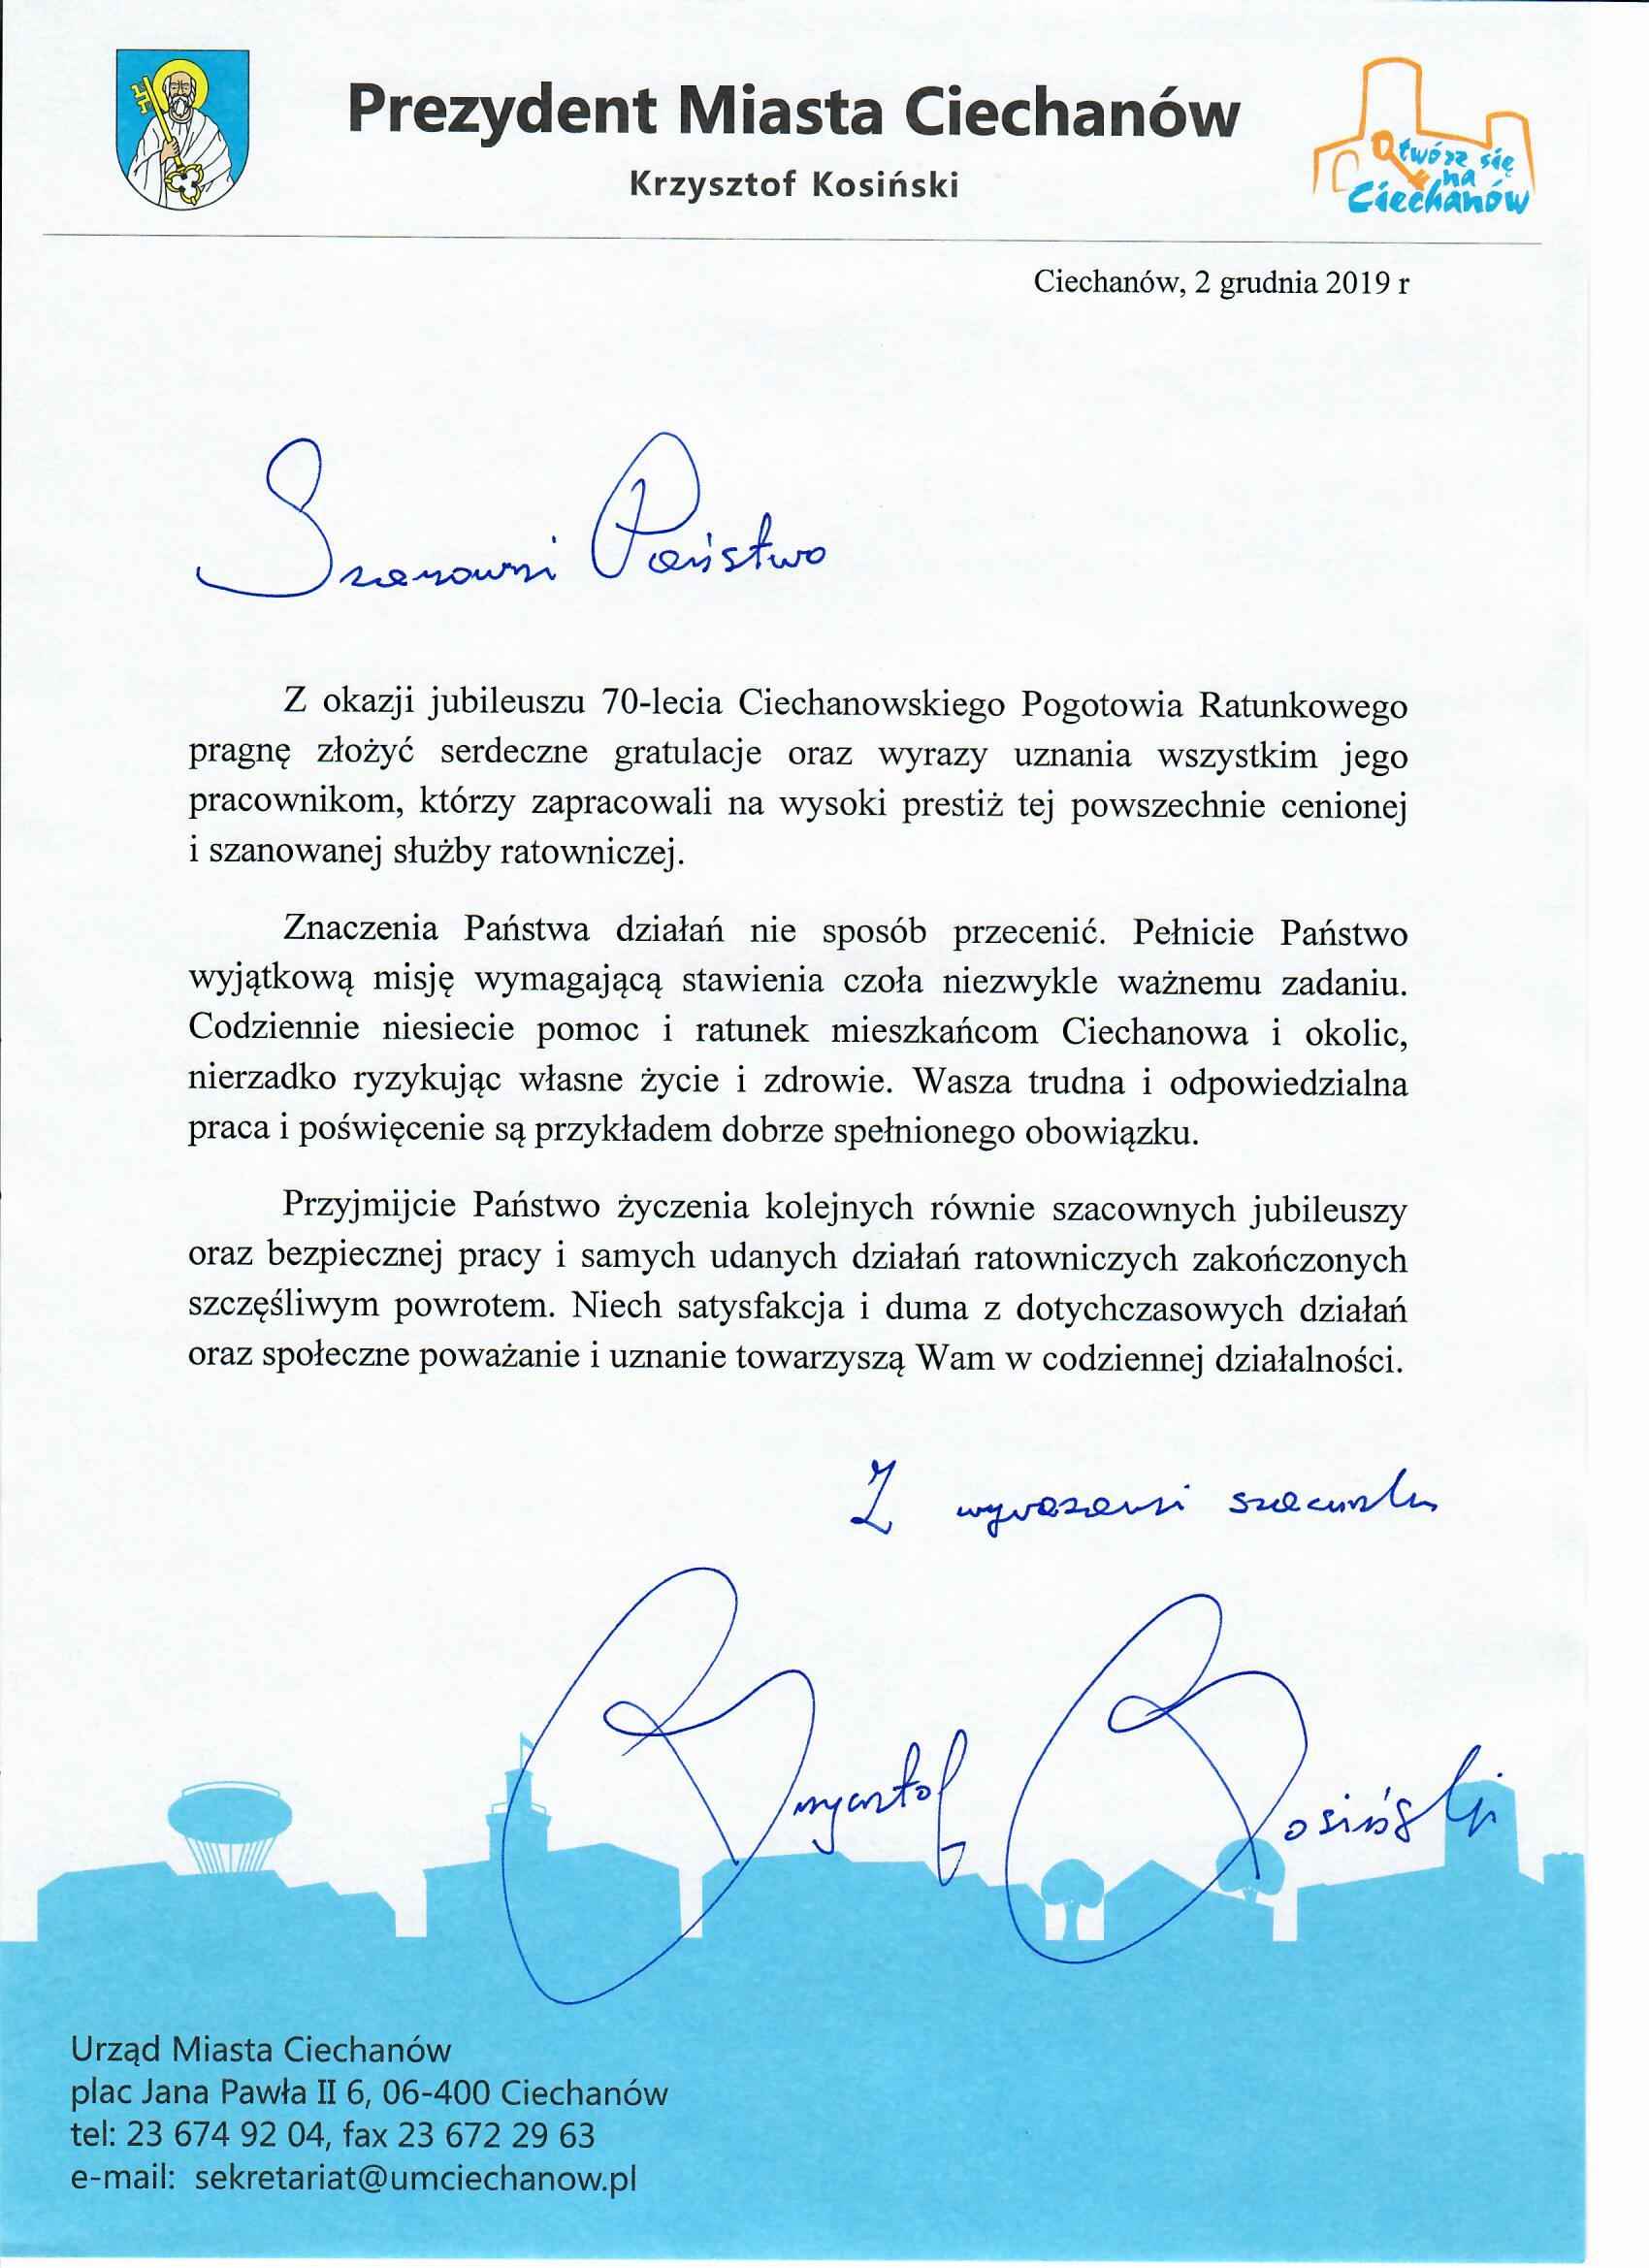 Prezydent Miasta Ciechanów
Krzysztof Kosiński
Otwórz się
na
Ciechanów
Ciechanów, 2 grudnia 2019 r
Szanowni Państwo
Z okazji jubileuszu 70-lecia Ciechanowskiego Pogotowia Ratunkowego
pragnę złożyć serdeczne gratulacje oraz wyrazy uznania wszystkim jego
pracownikom, którzy zapracowali na wysoki prestiż tej powszechnie cenionej
i szanowanej służby ratowniczej.
Znaczenia Państwa działań nie sposób przecenić. Pełnicie Państwo
wyjątkową misję wymagającą stawienia czoła niezwykle ważnemu zadaniu.
Codziennie niesiecie pomoc i ratunek mieszkańcom Ciechanowa i okolic,
nierzadko ryzykując własne życie i zdrowie. Wasza trudna i odpowiedzialna
praca i poświęcenie są przykładem dobrze spełnionego obowiązku.
Przyjmijcie Państwo życzenia kolejnych równie szacownych jubileuszy
oraz bezpiecznej pracy i samych udanych działań ratowniczych zakończonych
szczęśliwym powrotem. Niech satysfakcja i duma z dotychczasowych działań
oraz społeczne poważanie i uznanie towarzyszą Wam w codziennej działalności.
Z wyrazami szacunku
Krzysztof Kosiński
Urząd Miasta Ciechanów
plac Jana Pawła II 6, 06-400 Ciechanów
tel: 23 674 92 04, fax 23 672 29 63
e-mail: sekretariat@umciechanow.pl